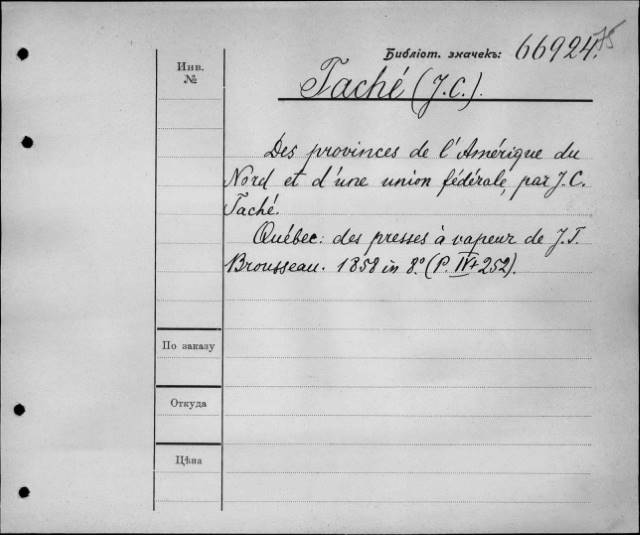 Библіот. значекъ: 66924.
75
Инв.
№
Taché (J.C.).
Des provinces de l'Amérique du
Nord et d'une union fédérale, par J.C.
Taché.
Québec: des presses à vapeur de J.T.
Brousseau. 1858 in 8.° (P. IV+252).
По заказу
Откуда
Цѣна